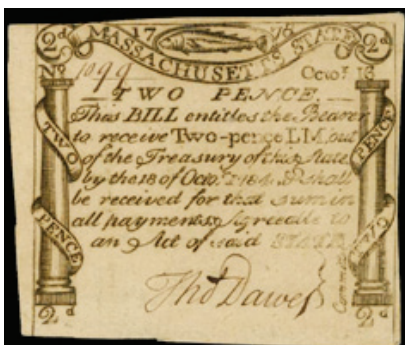 2d 17 76 2d
MASSACHUSETTS STATE
No 1099 Octor 18
TWO PENCE
This BILL entitles the Bearer
to receive Two-pence L.M. out
of the Treasury of this State
by the 18 of Octor 1784 & shall
be received for that sum in
all payments, Agreeable to
an Act of said STATE
TWO
PENCE
PENCE
TWO
Thos Dawes
Committee
2d 2d